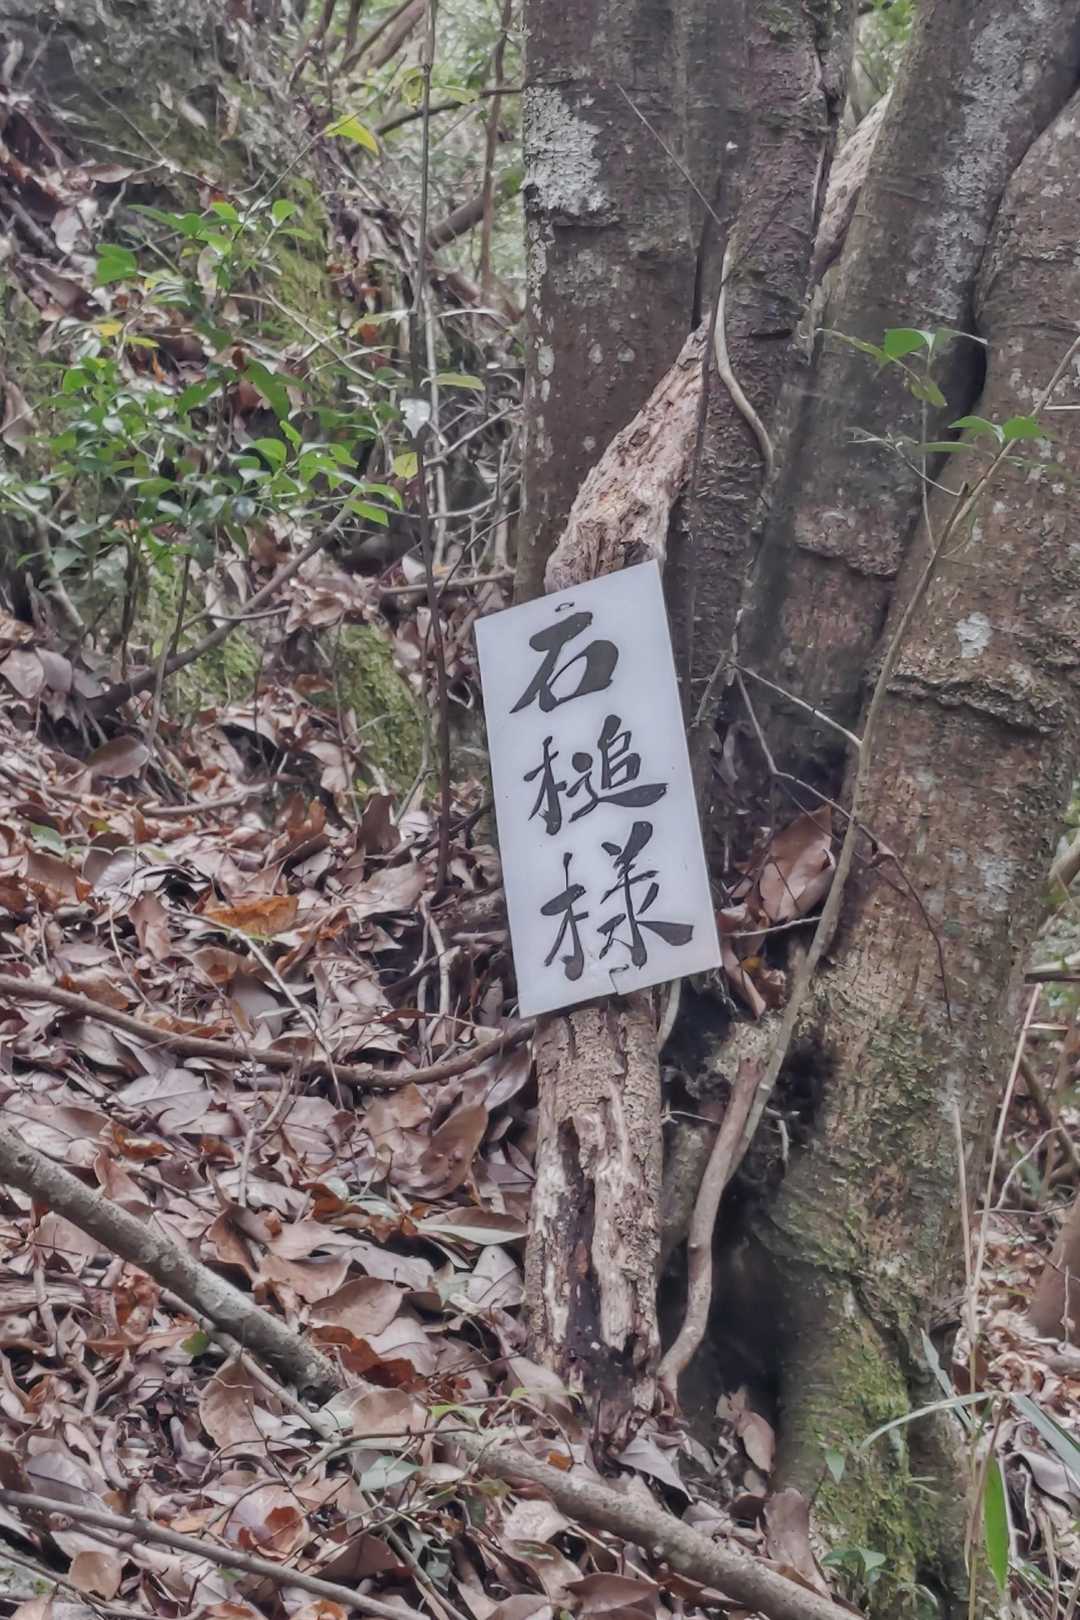 石槌様